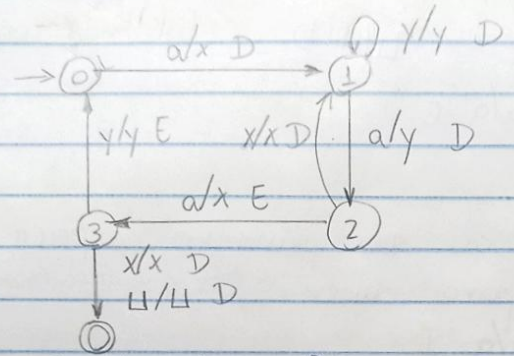 a/x D
y/y D
0
1
y/y E
x/x D
a/y D
a/x E
3
2
x/x D
⊔/⊔ D